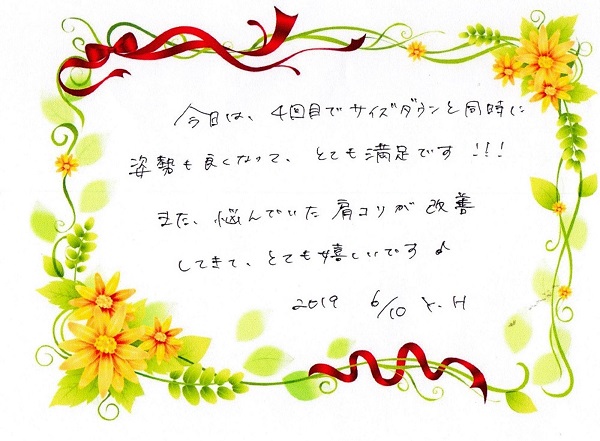 今回は、4回目でサイズダウンと同時に
姿勢も良くなって、とても満足です!!!
また、悩んでいた肩コリが改善
してきて、とても嬉しいです♪
2019 6/10 Y.H